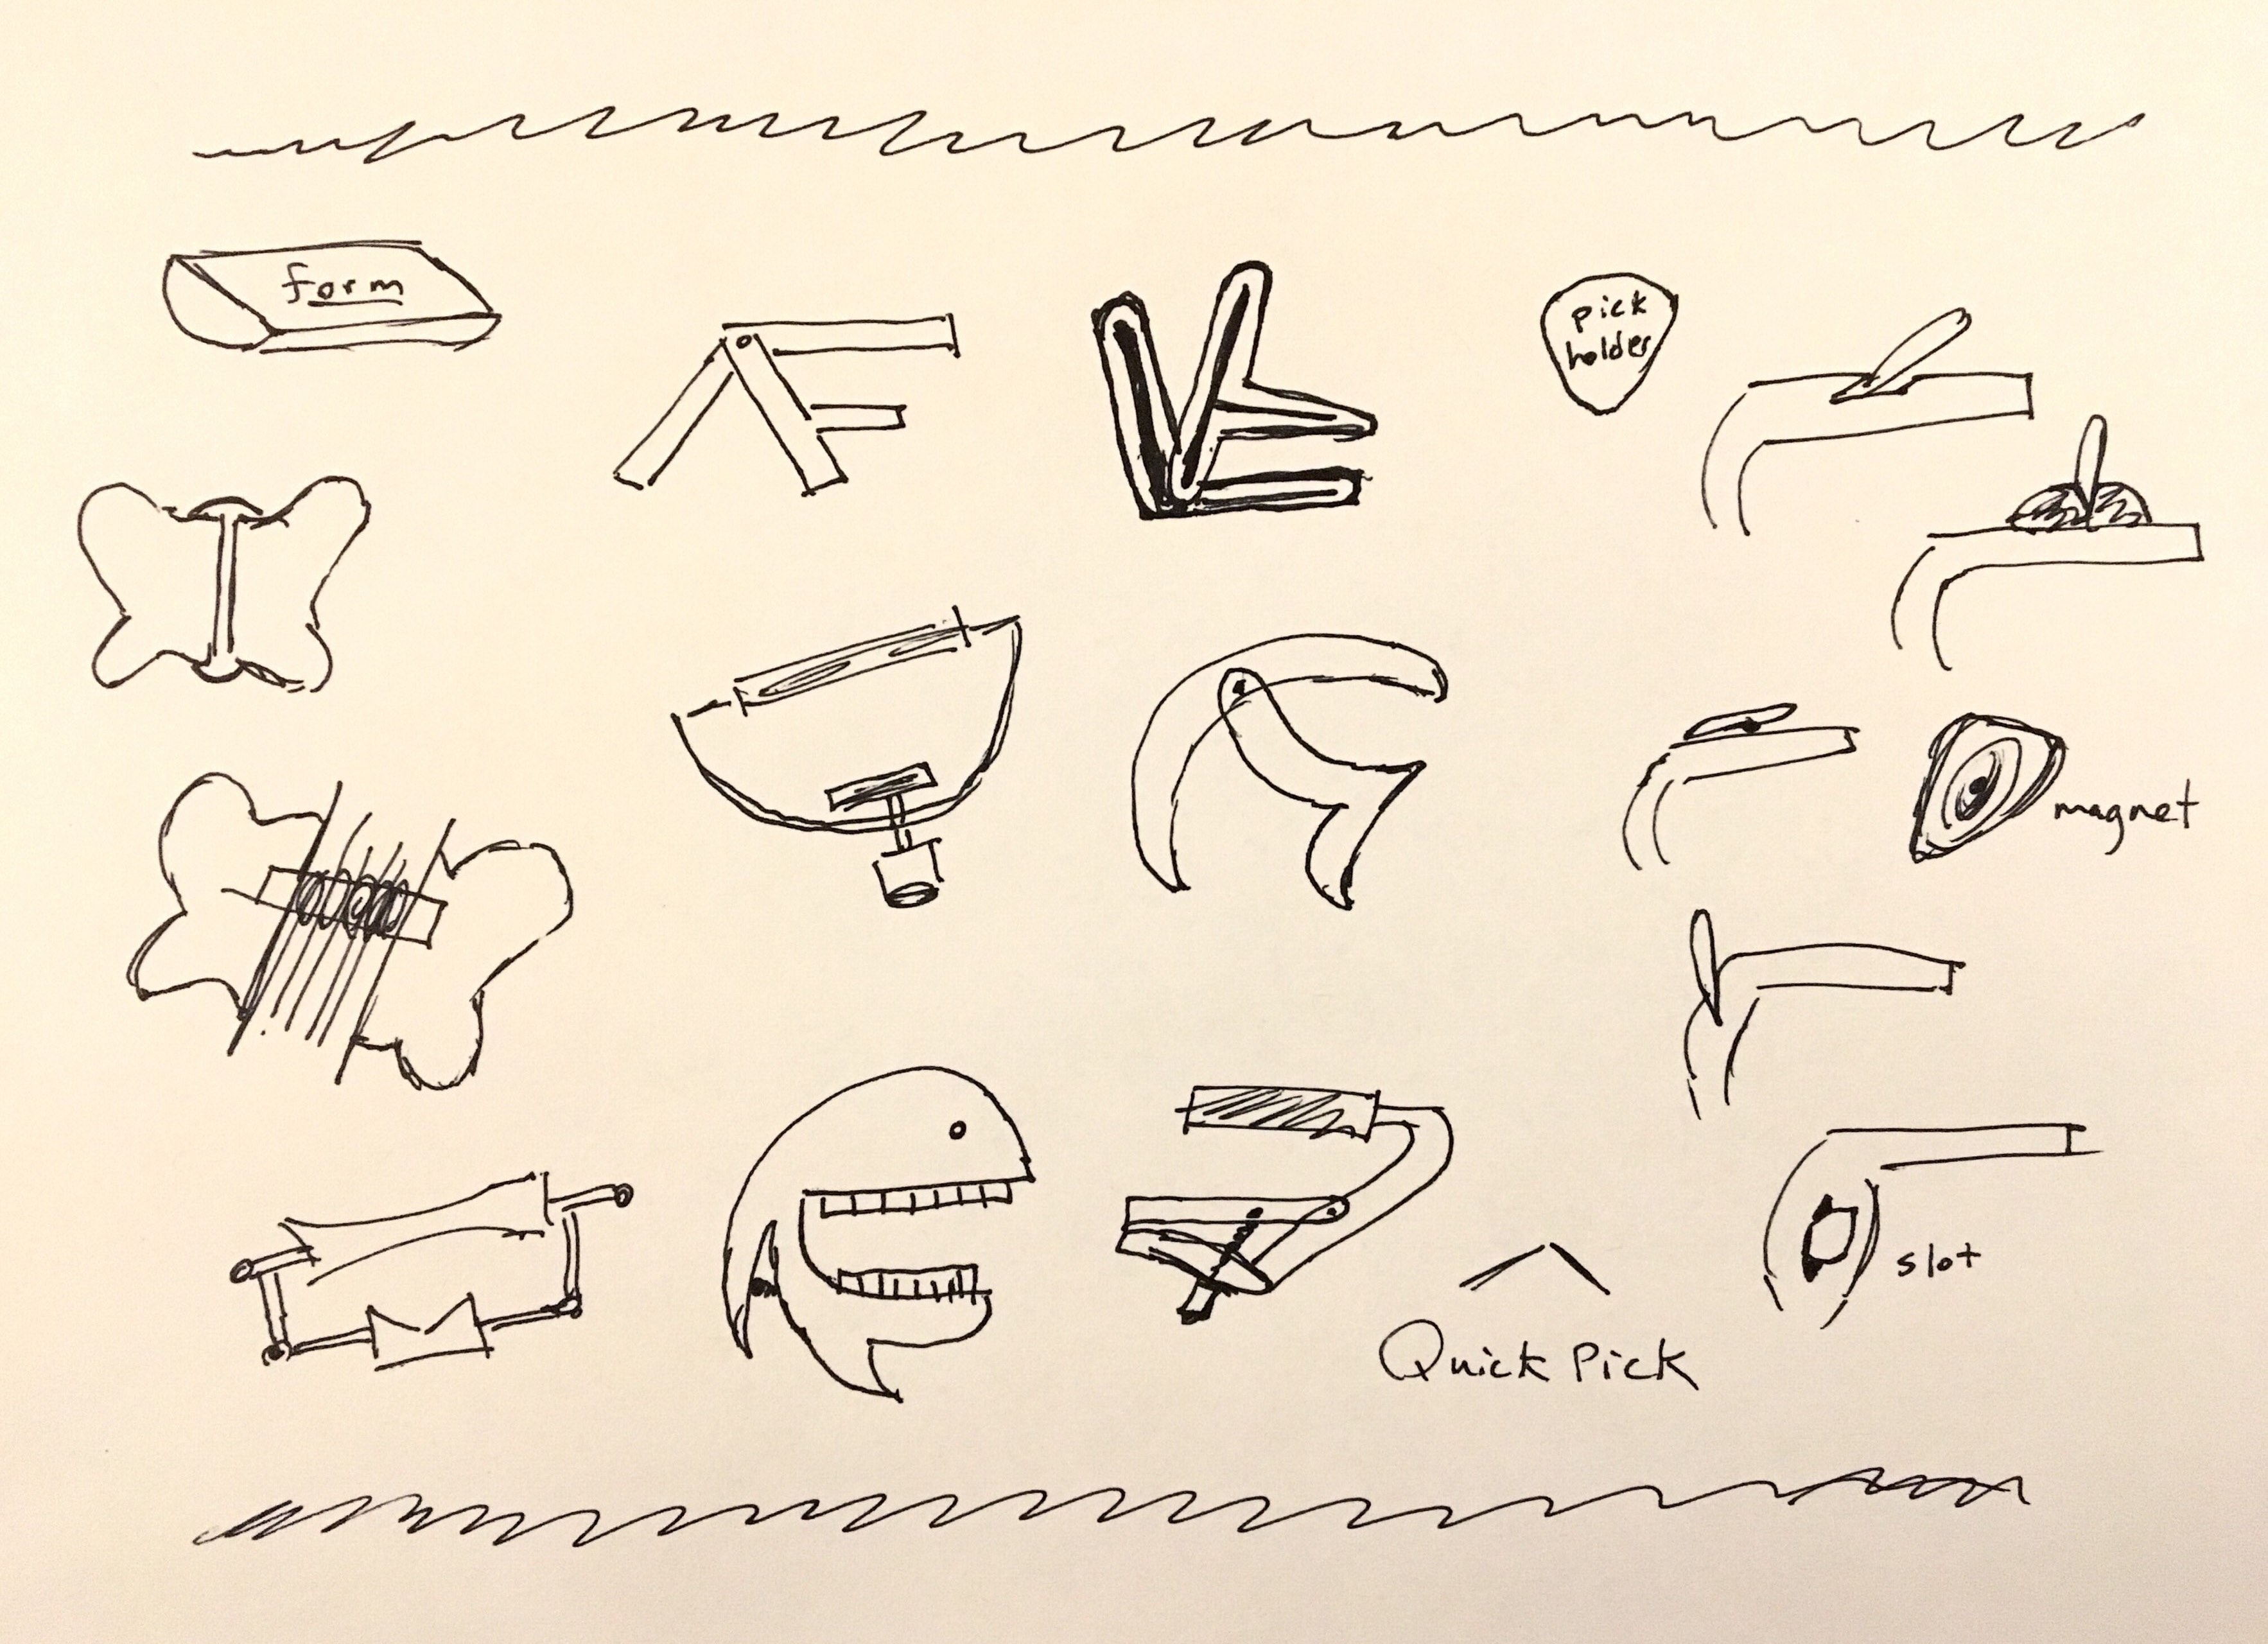 form
pick
holder
magnet
slot
Quick Pick